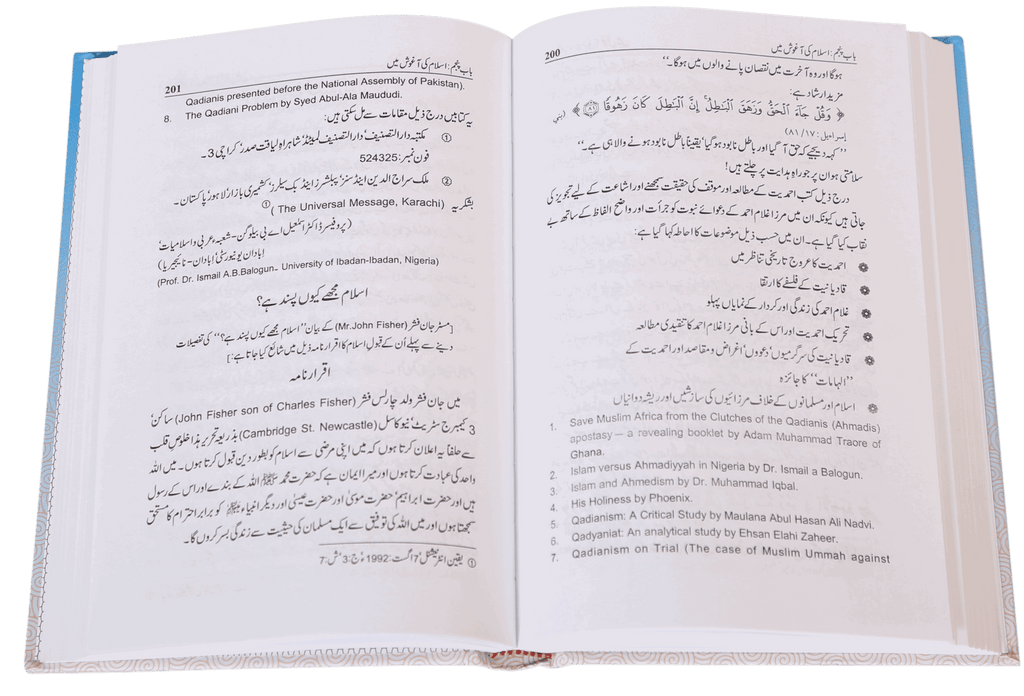 200
باب پنجم: اسلام کی آغوش میں
ہوگا اور وہ آخرت میں نقصان پانے والوں میں ہوگا۔‘‘
مزید ارشاد ہے:
﴿ وَقُلْ جَآءَ الْحَقُّ وَزَهَقَ الْبَٰطِلُ ۚ إِنَّ الْبَٰطِلَ كَانَ زَهُوقًا ﴿٨١﴾ ﴾ (بنی
إسراءیل: ۱۷/ ۸۱)
’’کہہ دیجیے کہ حق آگیا اور باطل نابود ہوگیا‘ یقیناً باطل نابود ہونے والا ہی ہے۔‘‘
سلامتی ہو ان پر جو راہِ ہدایت پر چلتے ہیں!
درج ذیل کتب احمدیت کے مطالعہ اور موقف کی حقیقت سمجھنے اور اشاعت کے لیے تجویز کی
جاتی ہیں کیونکہ ان میں مرزا غلام احمد کے دعوائے نبوت کو جرأت اور واضح الفاظ کے ساتھ بے
نقاب کیا گیا ہے۔ ان میں حسب ذیل موضوعات کا احاطہ کہا گیا ہے:
احمدیت کا عروج تاریخی تناظر میں
قادیانیت کے فلسفے کا ارتقا
غلام احمد کی زندگی اور کردار کے نمایاں پہلو
تحریک احمدیت اور اس کے بانی مرزا غلام احمد کا تنقیدی مطالعہ
قادیانیت کی سرگرمیوں‘ دعووں‘ اغراض و مقاصد اور احمدیت کے
’’الہامات‘‘ کا جائزہ
اسلام اور مسلمانوں کے خلاف مرزائیوں کی سازشیں اور ریشہ دوانیاں
1. Save Muslim Africa from the Clutches of the Qadianis (Ahmadis)
apostasy — a revealing booklet by Adam Muhammad Traore of
Ghana.
2. Islam versus Ahmadiyyah in Nigeria by Dr. Ismail a Balogun.
3. Islam and Ahmedism by Dr. Muhammad Iqbal.
4. His Holiness by Phoenix.
5. Qadianism: A Critical Study by Maulana Abul Hasan Ali Nadvi.
6. Qadyaniat: An analytical study by Ehsan Elahi Zaheer.
7. Qadianism on Trial (The case of Muslim Ummah against
201
باب پنجم: اسلام کی آغوش میں
Qadianis presented before the National Assembly of Pakistan).
8. The Qadiani Problem by Syed Abul-Ala Maududi.
یہ کتابیں درج ذیل مقامات سے مل سکتی ہیں:
① مکتبہ دار التصنیف‘ دار التصنیف لمیٹڈ‘ شاہراہِ لیاقت صدر‘ کراچی 3۔
فون نمبر: 524325
② ملک سراج الدین اینڈ سنز‘ پبلشرز اینڈ بک سیلرز‘ کشمیری بازار‘ لاہور‘ پاکستان۔
بشکریہ (The Universal Message, Karachi) ①
(پروفیسر ڈاکٹر اسمٰعیل اے بی بیلوگن۔ شعبہ عربی و اسلامیات‘
ابادان یونیورسٹی‘ ابادان۔ نائیجیریا)
(Prof. Dr. Ismail A.B.Balogun- University of Ibadan-Ibadan, Nigeria)
اسلام مجھے کیوں پسند ہے؟
[مسٹر جان فشر (Mr.John Fisher) کے بیان ’’اسلام مجھے کیوں پسند ہے؟‘‘ کی تفصیلات
دینے سے پہلے اُن کے قبولِ اسلام کا اقرار نامہ ذیل میں شائع کیا جاتا ہے:]
اقرار نامہ
میں جان فشر ولد چارلس فشر (John Fisher son of Charles Fisher) ساکن‘
3 کیمبرج سٹریٹ‘ نیو کاسل (Cambridge St. Newcastle) بذریعہ تحریر ہذا خلوصِ قلب
سے حلفاً یہ اعلان کرتا ہوں کہ میں اپنی مرضی سے اسلام کو بطور دین قبول کرتا ہوں۔ میں اللہ
واحد کی عبادت کرتا ہوں اور میرا ایمان ہے کہ حضرت محمد ﷺ اللہ کے بندے اور اس کے رسول
ہیں اور حضرت ابراہیمؑ‘ حضرت موسیٰ اور حضرت عیسیٰ اور دیگر انبیاء کو برابر احترام کا مستحق
سمجھتا ہوں اور میں اللہ کی توفیق سے ایک مسلمان کی حیثیت سے زندگی بسر کروں گا۔
① یقین انٹرنیشنل‘ 7 اگست‘ 1992ء‘ ج: 3‘ ش: 7